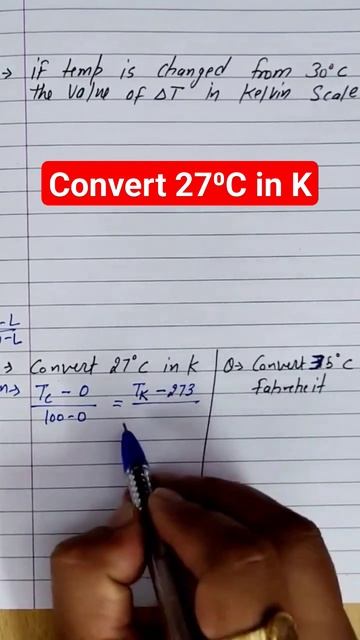 → if temp is changed from 30°c
the value of ΔT in kelvin Scale
Convert 27⁰C in K
-L
-L
→ Convert 27°c in k
Tc - 0 / 100-0 = TK - 273
Q→ Convert 35°c
fahreheit